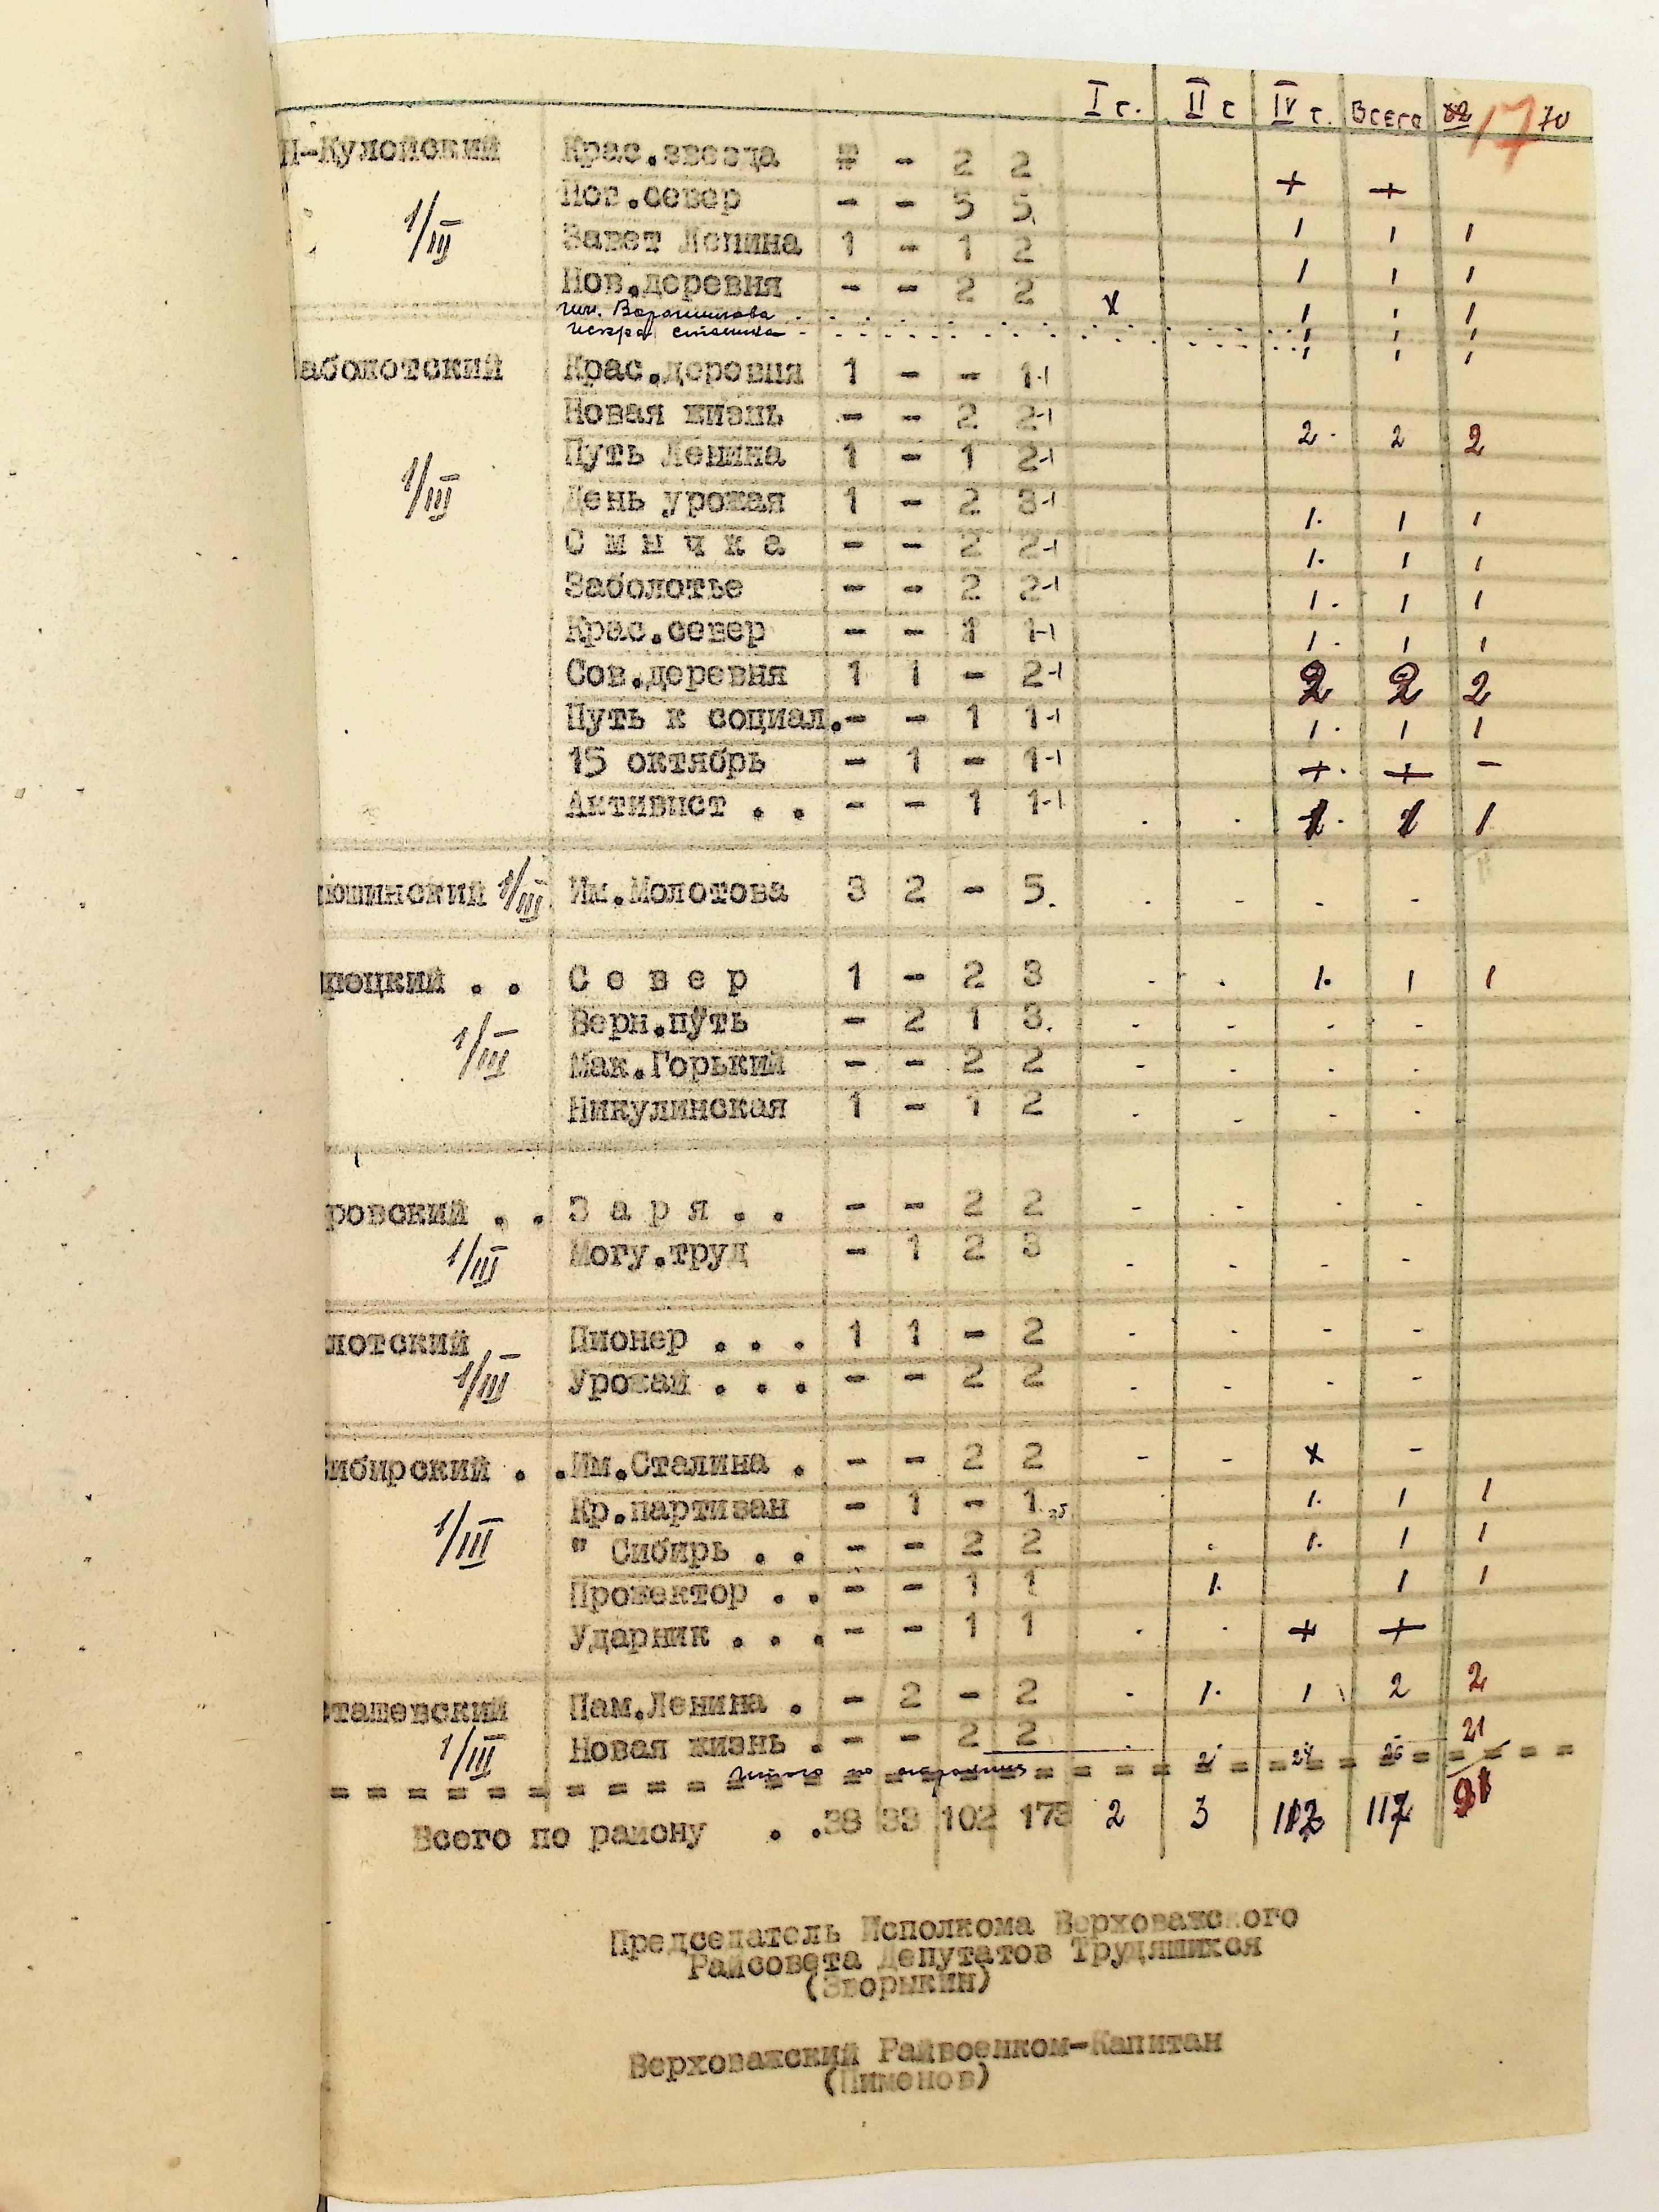 I с. II с IV с. Всего 17 70
Н-Кулойский Крас.звезда - 2 2 + +
Нов.север - - 5 5 1 1 1
1/III Завет Ленина 1 - 1 2 1 1 1
Нов.деревня - - 2 2 х 1 1 1
им. Ворошилова 1 1 1
аболотский Крас.деревня 1 - - 1-1
Новая жизнь - - 2 2-1 2 2 2
1/III Путь Ленина 1 - 1 2-1
День урожая 1 - 2 3-1 1 1 1
С м ы ч к а - - 2 2-1 1 1 1
Заболотье - - 2 2-1 1 1 1
Крас.север - - 1 1-1 1 1 1
Сов.деревня 1 1 - 2-1 2 2 2
Путь к социал. - - 1 1-1 1 1 1
15 октябрь - 1 - 1-1 + + -
Активист . . - - 1 1-1 1 1 1
юшинский 1/III Им.Молотова 3 2 - 5. - - - -
рецкий . . С е в е р 1 - 2 3 - . 1. 1 1
1/III Верн.путь - 2 1 3. - - - -
Мак.Горький - - 2 2 - - - -
Никулинская 1 - 1 2 - - - -
ровский . . З а р я . . - - 2 2 - - - -
1/III Могу.труд - 1 2 3 - - - -
лотский Пионер . . . 1 1 - 2 - - - -
1/III Урожай . . . - - 2 2 - - - -
ибирский . . Им.Сталина . - - 2 2 - - х -
1/III Кр.партизан - 1 - 1 1. 1 1
" Сибирь . . - - 2 2 . 1. 1 1
Прожектор . . - - 1 1 1. 1 1
Ударник . . . - - 1 1 . . + +
ташевский Пам.Ленина . - 2 - 2 - 1. 1 2 2
1/III Новая жизнь . - - 2 2 21
Всего по району . . 38 33 102 173 2 3 112 117 91
Председатель Исполкома Верховажского
Райсовета Депутатов Трудящихся
(Зворыкин)
Верховажский Райвоенком-Капитан
(Пименов)